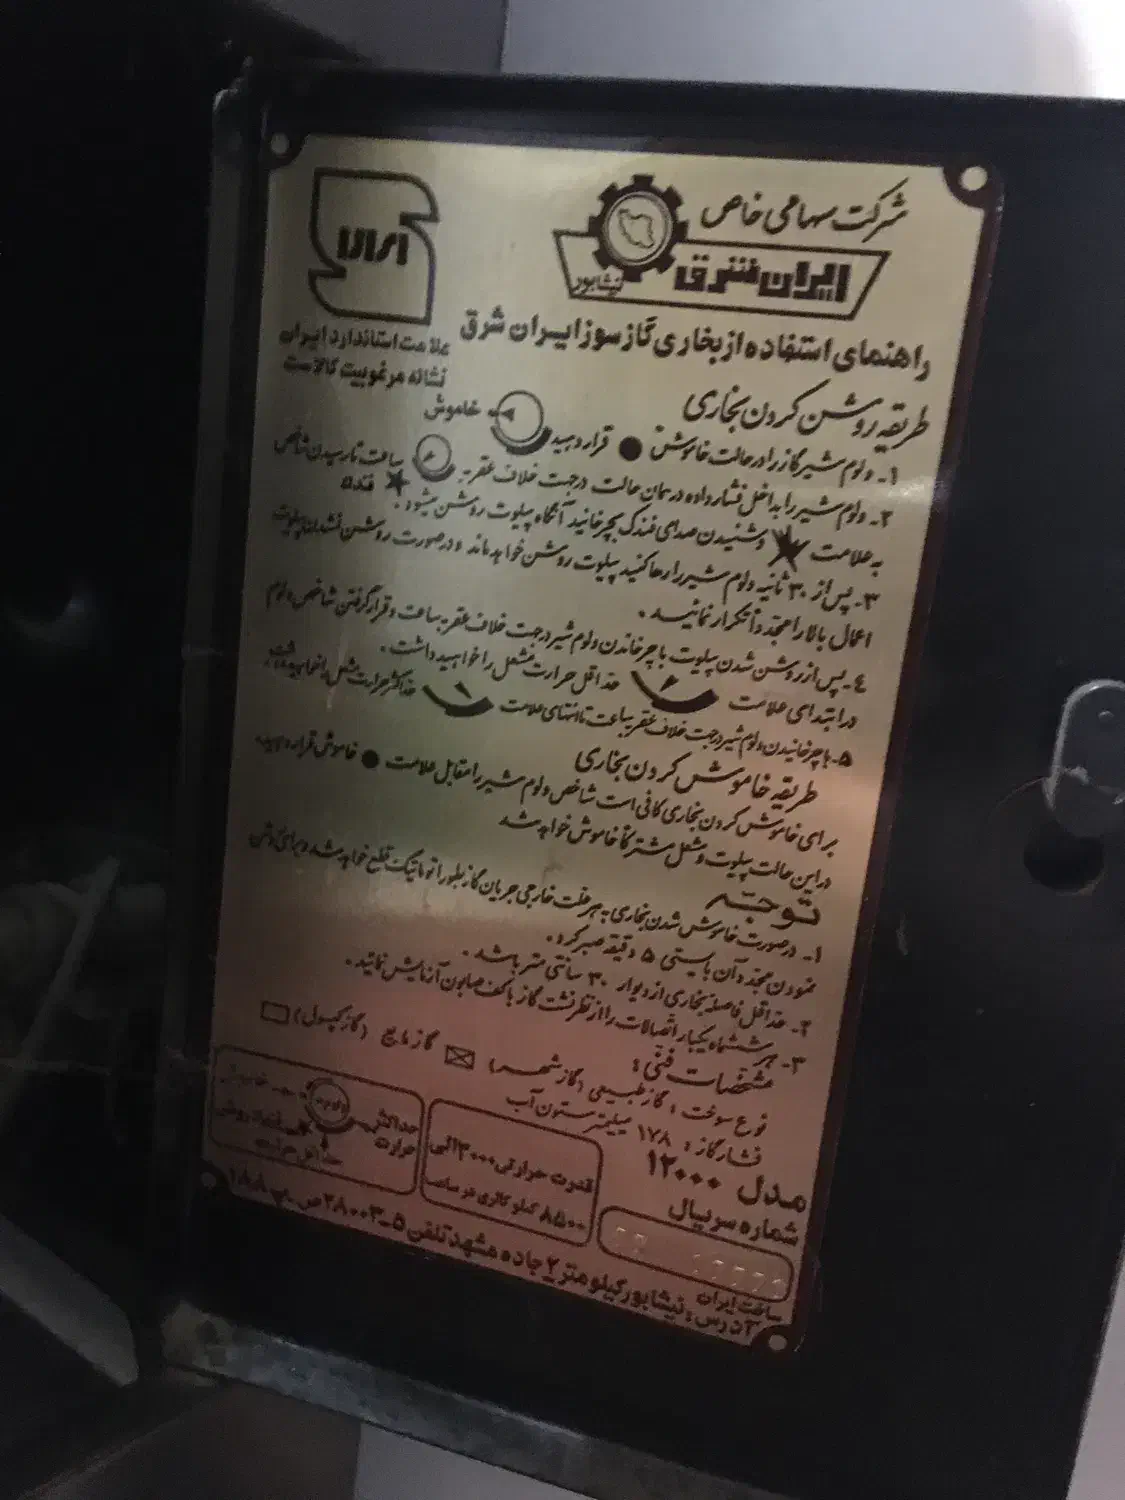 شرکت سهامی خاص
ایران شرق
نیشابور
علامت استاندارد ایران
نشانه مرغوبیت کالاست
راهنمای استفاده از بخاری گاز سوز ایران شرق
طریقه روشن کردن بخاری
خاموش
۱- ولوم شیر گاز را در حالت خاموش ● قرار دهید
۲- ولوم شیر را بداخل فشار داده در همان حالت در جهت خلاف عقربه ساعت تا رسیدن شاخص
به علامت و شنیدن صدای فندک بچرخانید آنگاه پیلوت روشن میشود.
فندک
۳- پس از ۳۰ ثانیه ولوم شیر را رها کنید پیلوت روشن خواهد ماند و در صورت روشن نشدن پیلوت
اعمال بالا را مجدداً تکرار نمائید.
٤- پس از روشن شدن پیلوت با چرخاندن ولوم شیر در جهت خلاف عقربه ساعت و قرار گرفتن شاخص ولوم
در ابتدای علامت حداقل حرارت مشعل را خواهید داشت.
۵- با چرخانیدن ولوم شیر در جهت خلاف عقربه ساعت تا انتهای علامت حداکثر حرارت مشعل را خواهید داشت.
طریقه خاموش کردن بخاری
برای خاموش کردن بخاری کافی است شاخص ولوم شیر را مقابل علامت ● خاموش قرار دهید
در این حالت پیلوت و مشعل مشترکاً خاموش خواهد شد
توجه
۱- در صورت خاموش شدن بخاری به هر علت خارجی جریان گاز بطور اتوماتیک قطع خواهد شد و برای روشن
نمودن مجدد آن بایستی ۵ دقیقه صبر کرد.
۲- حداقل فاصله بخاری از دیوار ۳۰ سانتی متر باشد.
۳- هر ششماه یکبار اتصالات را از نظر نشت گاز با کف صابون آزمایش نمائید.
مشخصات فنی:
نوع سوخت: گاز طبیعی (گاز شهر) گاز مایع (گاز کپسول)
فشار گاز: ۱۷۸ میلیمتر ستون آب
مدل ۱۲۰۰۰
شماره سریال
قدرت حرارتی ۳۰۰۰ الی
۸۵۰۰ کیلو کالری در ساعت
حداکثر
حرارت
ساخت ایران
آدرس: نیشابور کیلومتر ۲ جاده مشهد تلفن ۵-۲۸۰۰۳ ص.پ ۱۸۸